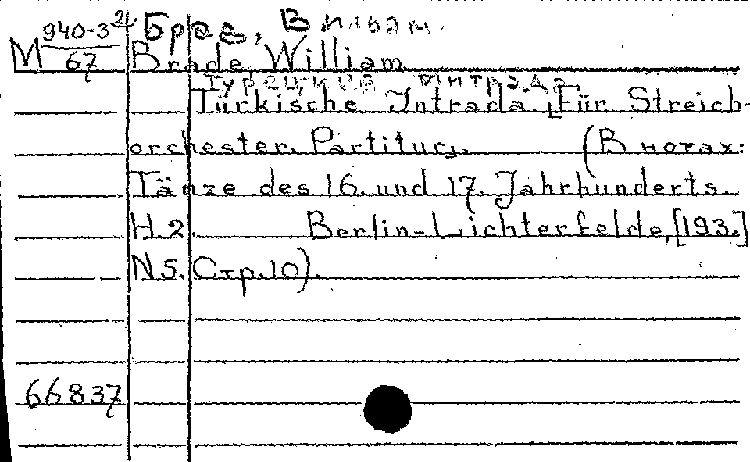 940-3² Браd, Вильям.
М 67 Brade, William
Турецкая интрада.
Türkische Intrada. [Für Streich-
orchester. Partitur]. (В нотах:
Tänze des 16. und 17. Jahrhunderts.
H. 2. Berlin-Lichterfelde, [193.]
N5. Стр. 10).
66837